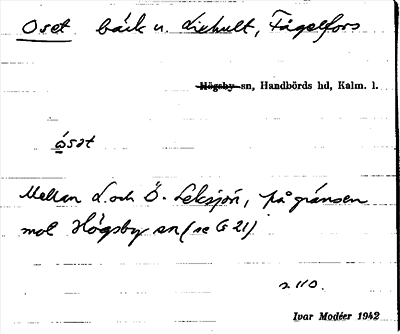 Oset bäck n. Liehult, Fågelfors
Högsby sn, Handbörds hd, Kalm. l.
ósət
Mellan L. och Ö. Leksjön, på gränsen
mot Högsby sn (se G 21)
s. 110.
Ivar Modéer 1942